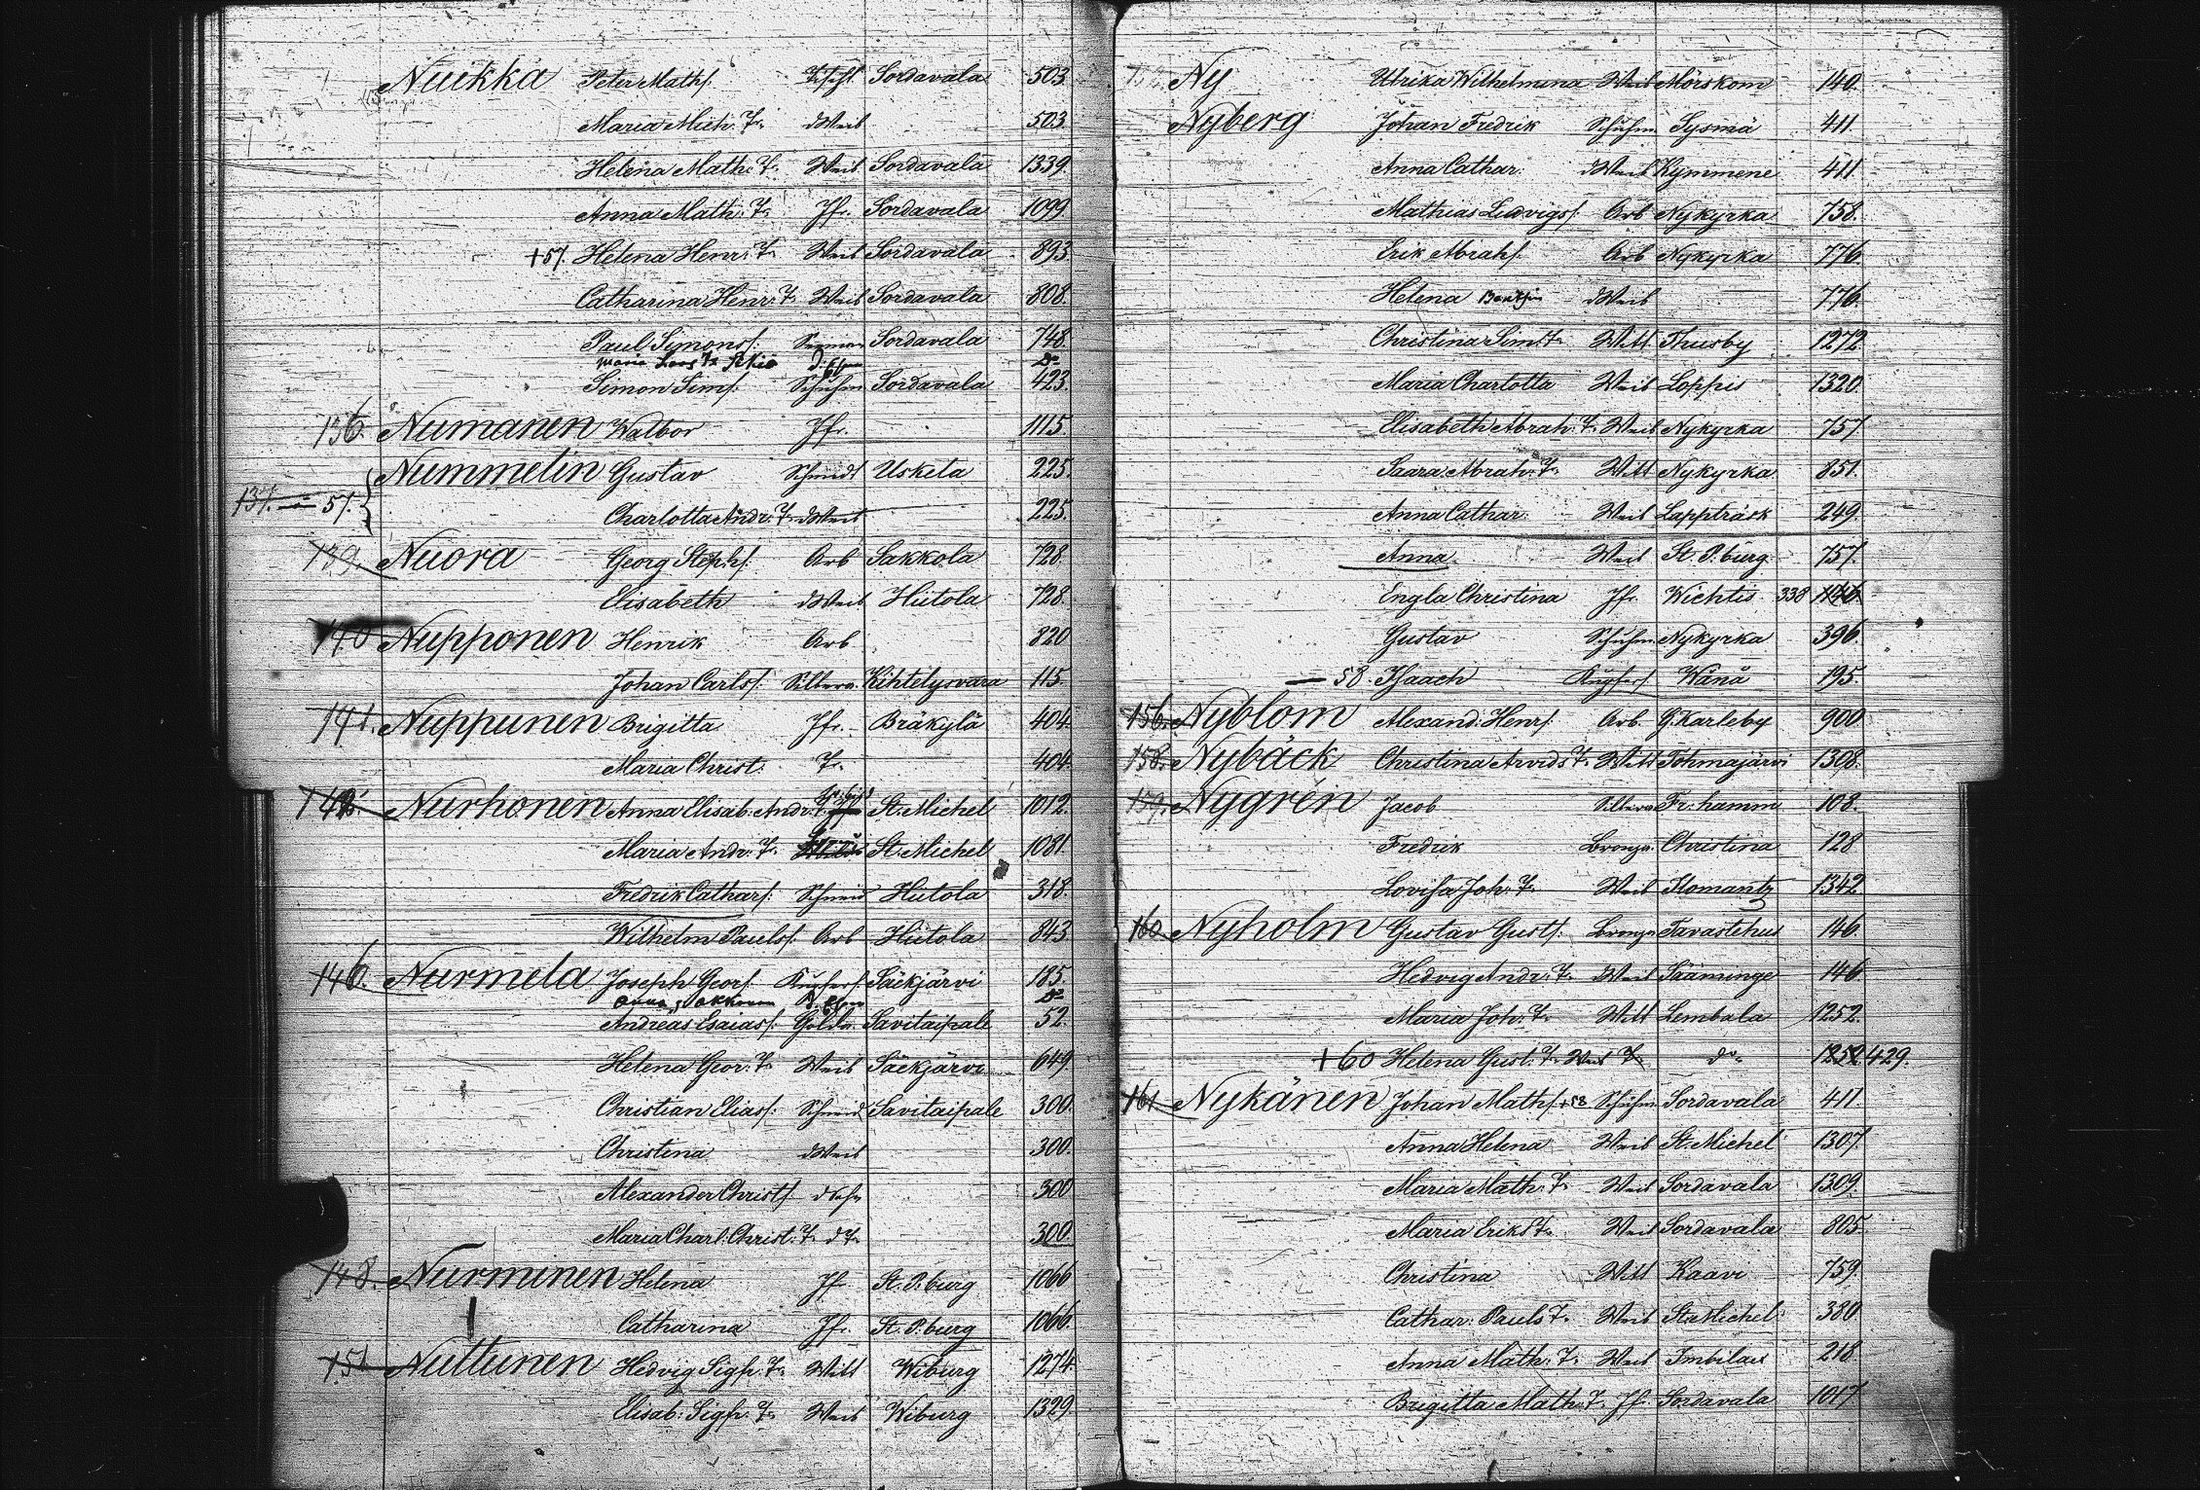 Nuikka Peter Maths. Tischl. Sordavala 503.
Maria Mich. Tr. d Weib 503.
Helena Math. Tr. Weib Sordavala 1339.
Anna Math. Tr. Jfr. Sordavala 1099.
+57. Helena Henr. Tr. Weib Sordavala 893.
Catharina Henr. Tr. Weib Sordavala 808.
Paul Simons. Sordavala 748.
Maria Do
Simon Sims. Schuhm Sordavala 423.
136. Numanen Walbor Jfr. 1115.
Nummelin Gustav Schmidt Uskela 225.
137. — 57. Charlotta Andr. Tr. d Weib 225.
139. Nuora Georg Stephs. Arb Sakkola 728.
Elisabeth d Weib Hiitola 728.
140 Nupponen Henrik Arb 820
Johan Carls. Silbera. Kihtelysvara 115.
141. Nuppunen Brigitta Jfr. Bräkylä 404.
Maria Christ. Tr. 404.
142. Nurhonen Anna Elisab. Andr. T. St. Michel 1012.
Maria Andr. Tr. St. Michel 1081.
Fredrik Cathars. Schneid Hiitola 318.
Wilhelm Pauls. Arb Hiitola 843.
146. Nurmela Joseph Geors. Kupfers. Säckjärvi 185.
Anna Do
Andreas Esaias. Golda. Savitaipale 52.
Helena Geor. Tr. Weib Säckjärvi 649.
Christian Elias. Schneid Savitaipale 300.
Christina d Weib 300.
Alexander Christs. d Sohn 300
Maria Charl. Christ. Tr. d Tr. 300.
148. Nurminen Helena Jfr St. P. burg 1066
Catharina Jfr. St. P. burg 1066.
151 Nuttunen Hedvig Sigfr. Tr. Witt Wiburg 1274
Elisab. Sigfr. Tr. Weib Wiburg 1329.
Ny Ulrika Wilhelmina Weib Mörskom 140.
Nyberg Johan Fredrik Schuhm Sysmä 411.
Anna Cathar. d Weib Kymmene 411.
Mathias Ludvigs. Arb Nykyrka 758.
Erik Abrahs. Arb Nykyrka 776.
Helena d Weib 776.
Christina Sim. Tr. Witt Thusby 1272
Maria Charlotta Weib Loppis 1320.
Elisabeth Abrah. Tr. Weib Nykyrka 757.
Saara Abrah. Tr. Witt Nykyrka 851.
Anna Cathar. Weib Lappträsk 249.
Anna Weib St. P. burg 757.
Engla Christina Jfr. Wichtis 338 1146.
Gustav Schuhm Nykyrka 396.
— 58. Isaach Kupfers Wånå 195.
156. Nyblom Alexand. Henrs. Arb. G. Karleby 900
158. Nybäck Christina Arvids Tr. Witt Tohmajärvi 1308.
159. Nygrén Jacob Silbera Fr. hamm 108.
Fredrik Bronza. Christina 128
Lovisa Joh. Tr. Weib Ilomantz 1342
160. Nyholm Gustav Gusts. Bronza Tavastehus 146.
Hedvig Andr. Tr. d Weib Sääminge 146
Maria Joh. Tr. Witt Lembala 1252.
+60 Helena Gust. Tr. Weib Tr. do 1252 429.
161. Nykänen Johan Maths. +58 Schuhm Sordavala 411.
Anna Helena Weib St. Michel 1307.
Maria Math. Tr. Weib Sordavala 1309.
Maria Eriks Tr. Weib Sordavala 805.
Christina Witt Kaavi 759.
Cathar. Pauls Tr. Weib St. Michel 380
Anna Math. Tr. Weib Imbilax 218
Brigitta Math. Tr. Jfr. Sordavala 1017.